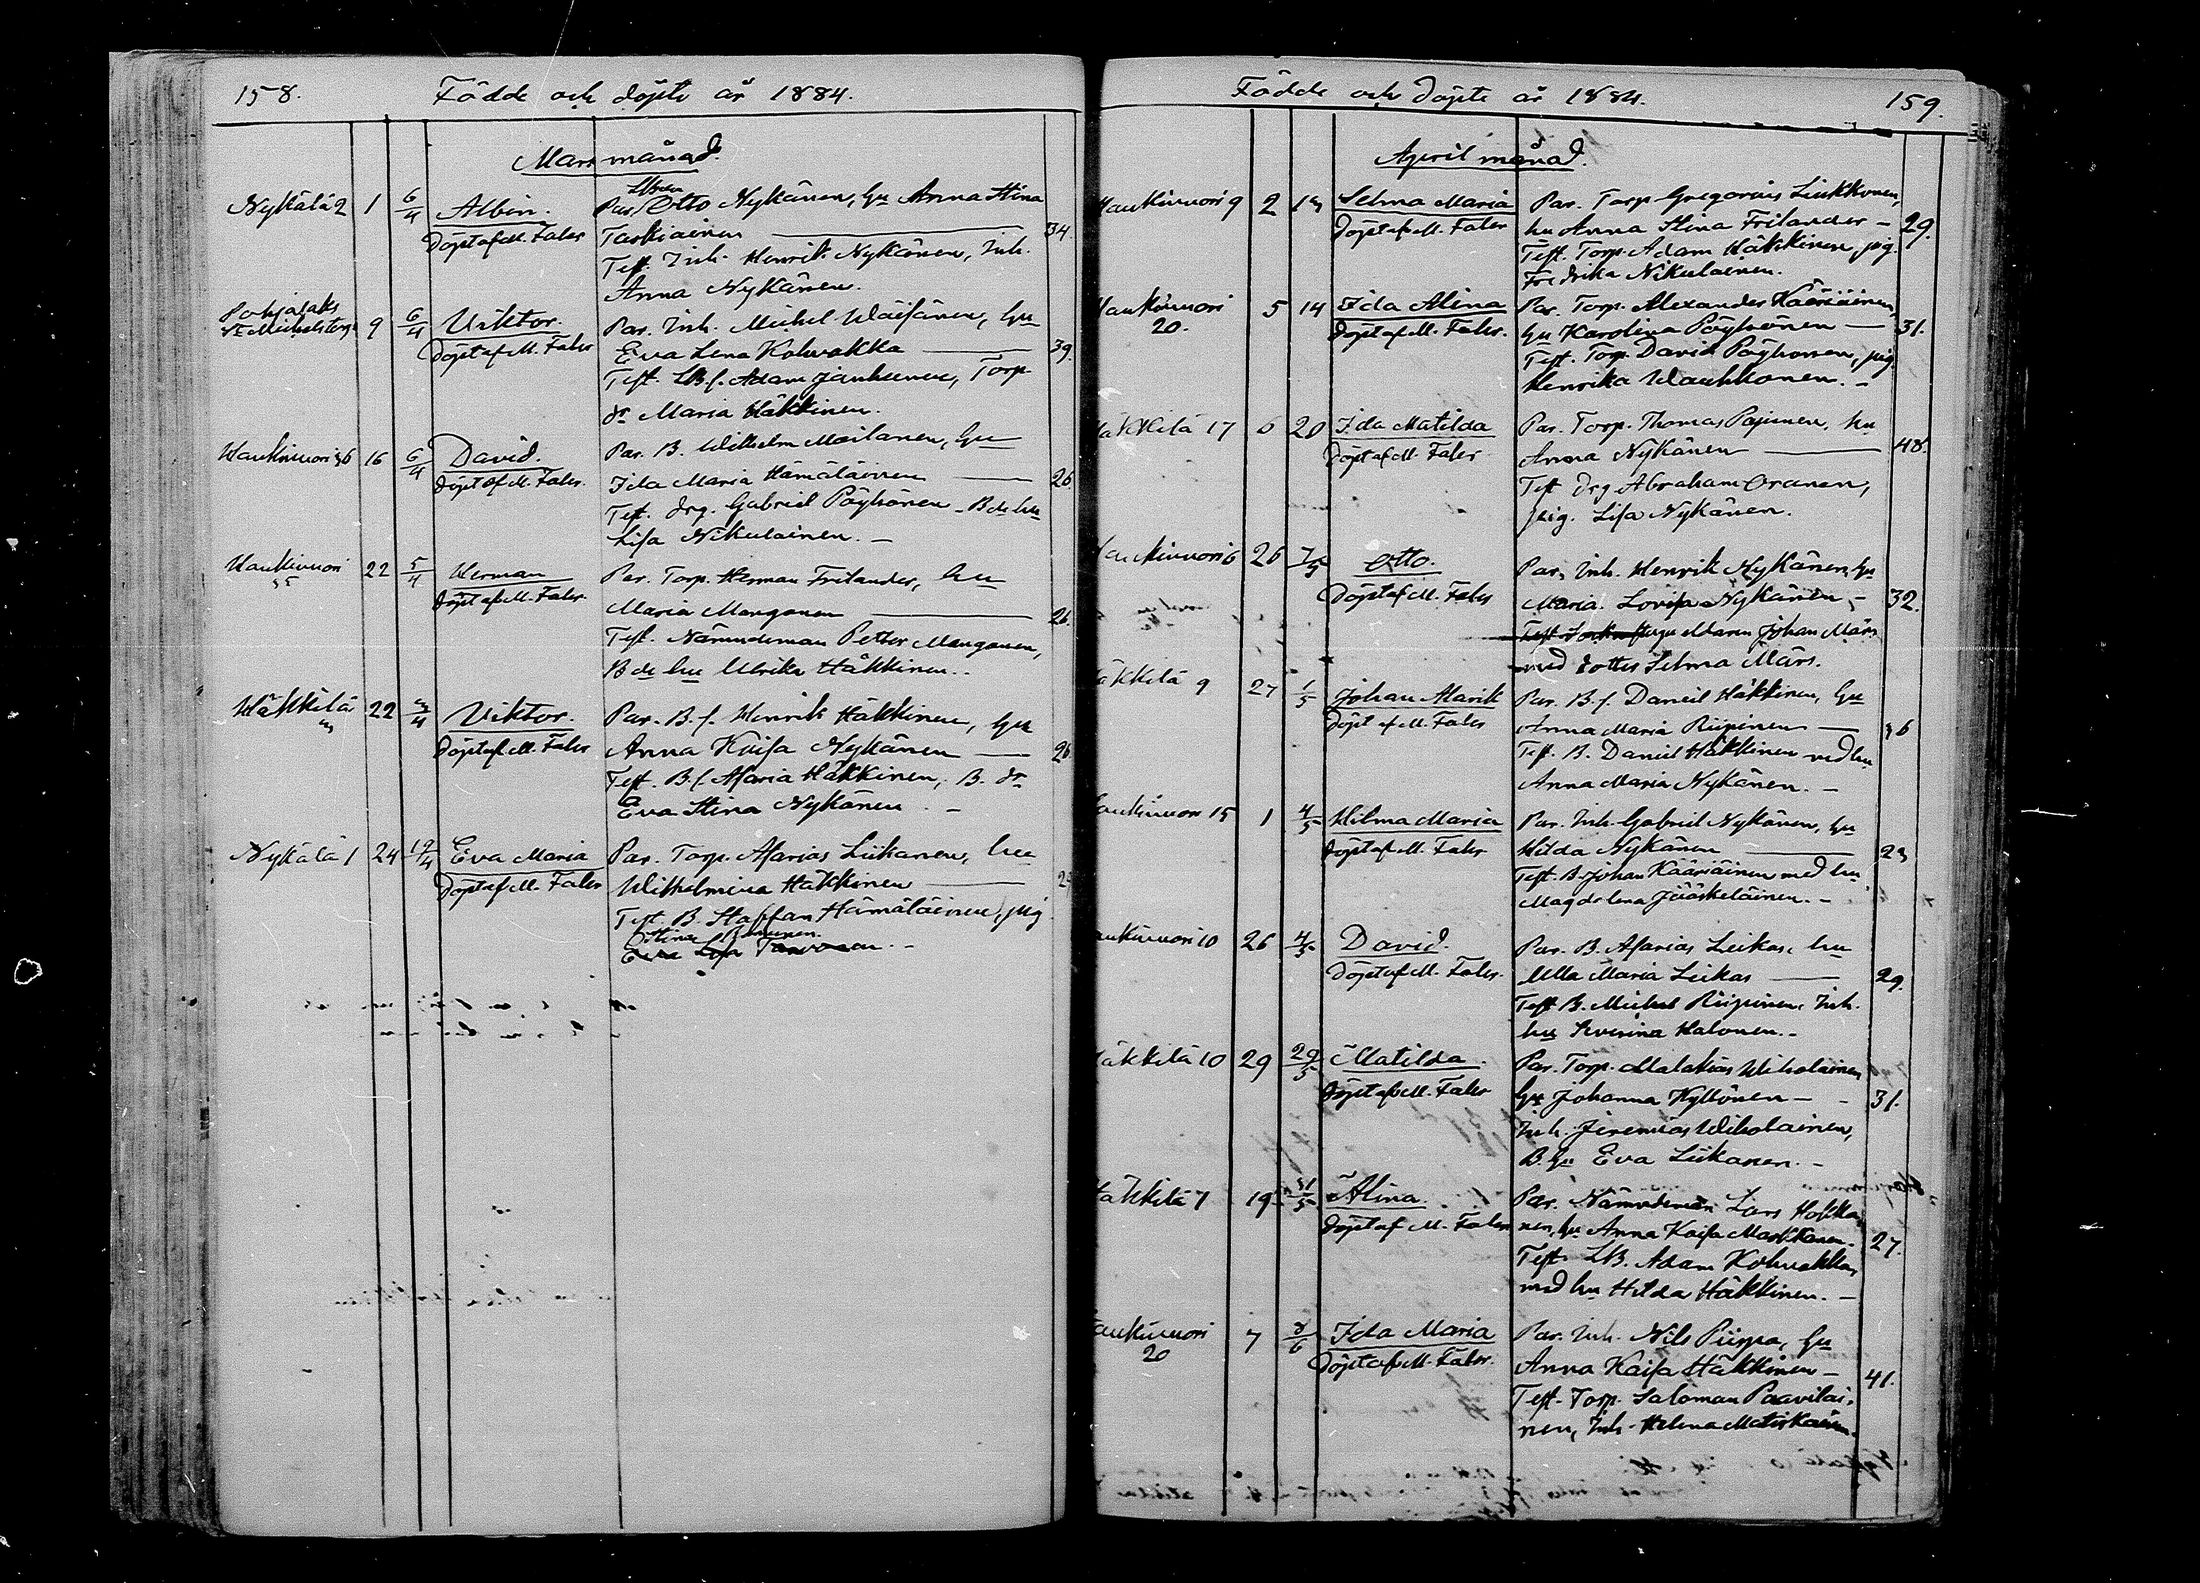 158. Födde och döpte år 1884.
Mars månad.
Nykälä 2 1 6/4 Albin. Par. Otto Nykänen, hu Anna Stina
Döpt af M. Faler Taskiainen 34.
Test. Inh. Henrik Nykänen, Inh.
Anna Nykänen.
Pohjalaks
St Michels 9 6/4 Viktor. Par. Inh. Michel Väisänen, hu
Döpt af M. Faler Eva Lena Kohvakka 39
Test. LBs. Adam Janhunen, Torp
dr Maria Häkkinen.
Haukivuori 16 6/4 David. Par. B. Wilhelm Moilanen, hu
Döpt af M. Faler. Ida Maria Hämäläinen 26
Test. Drg. Gabriel Pöyhönen, Bde hu
Lisa Nikulainen. —
Haukivuori 22 5/4 Herman Par. Torp. Herman Frilander, hu
Döpt af M. Faler. Maria Manganen 26.
Test. Nämndeman Petter Manganen,
Bde hu Ulrika Häkkinen..
Häkkilä 22 3/4 Viktor. Par. B.s. Henrik Häkkinen, hu
3 Döpt af M. Faler Anna Kaisa Nykänen 26
Test. B.s. Asaria Häkkinen, B. dr
Eva Stina Nykänen. —
Nykälä 1 24 19/4 Eva Maria Par. Torp. Asarias Liikanen, hu
Döpt af M. Faler Wilhelmina Häkkinen
Test. B. Staffan Hämäläinen, pig
Stina
Eva Lisa
Födde och döpte år 1884. 159.
April månad.
Haukivuori 9 2 13 Selma Maria Par. Torp Gregorius Liukkonen,
Döpt af M. Faler hu Anna Stina Frilander — 29.
Test. Torp. Adam Häkkinen, pig.
Fredrika Nikulainen.
Haukivuori 5 14 Ida Alina Par. Torp. Alexander Kääriäinen,
20. Döpt af M. Faler. hu Karolina Pöyhönen — 31.
Test. Torp. David Pöyhönen, pig.
Henrika Waukkonen. —
Häkkilä 17 6 20 Ida Matilda Par. Torp. Thomas Pajunen, hu
Döpt af M. Faler Anna Nykänen 48.
Test Drg Abraham Oranen,
pig. Lisa Nykänen.
Haukivuori 6 26 7/5 Otto. Par. Inh. Henrik Nykänen, hu
Döpt af M. Faler Maria Lovisa Nykänen — 32.
Test. Johan Märs
med dotter Selma Märs.
Häkkilä 9 27 1/5 Johan Alarik Par. B.s. Daniel Häkkinen, hu
Döpt af M. Faler Anna Maria Riipinen — 36
Test. B. Daniel Häkkinen med hu
Anna Maria Nykänen. —
Haukivuori 15 1 4/5 Hilma Maria Par. Inh. Gabriel Nykänen, hu
Döpt af M. Faler Hilda Nykänen 23
Test B. Johan Kääriäinen med hu
Magdalena Jääskeläinen. —
Haukivuori 10 26 4/5 David. Par. B. Asarias Leikas, hu
Döpt af M. Faler. Ulla Maria Leikas 29.
Test B. Michel Riipinen, Inh.
hu Severina Halonen. —
Häkkilä 10 29 29/5 Matilda. Par. Torp. Malakias Wiholainen
Döpt af M. Faler hu Johanna Kyllönen — 31.
Inh. Jeremias Wiholainen,
B. hu Eva Liikanen. —
Häkkilä 7 19 31/5 Alina. Par. Nämndeman Lars Hokka
Döpt af M. Faler nen, hu Anna Kaisa Markkanen. 27.
Test. LB. Adam Kohvakka,
med hu Hilda Häkkinen. —
Haukivuori 7 8/6 Ida Maria Par. Inh. Nils Piispa, hu
20 Döpt af M. Faler. Anna Kaisa Häkkinen — 41.
Test. Torp. Saloman Paavilai-
nen, Inh. Helena